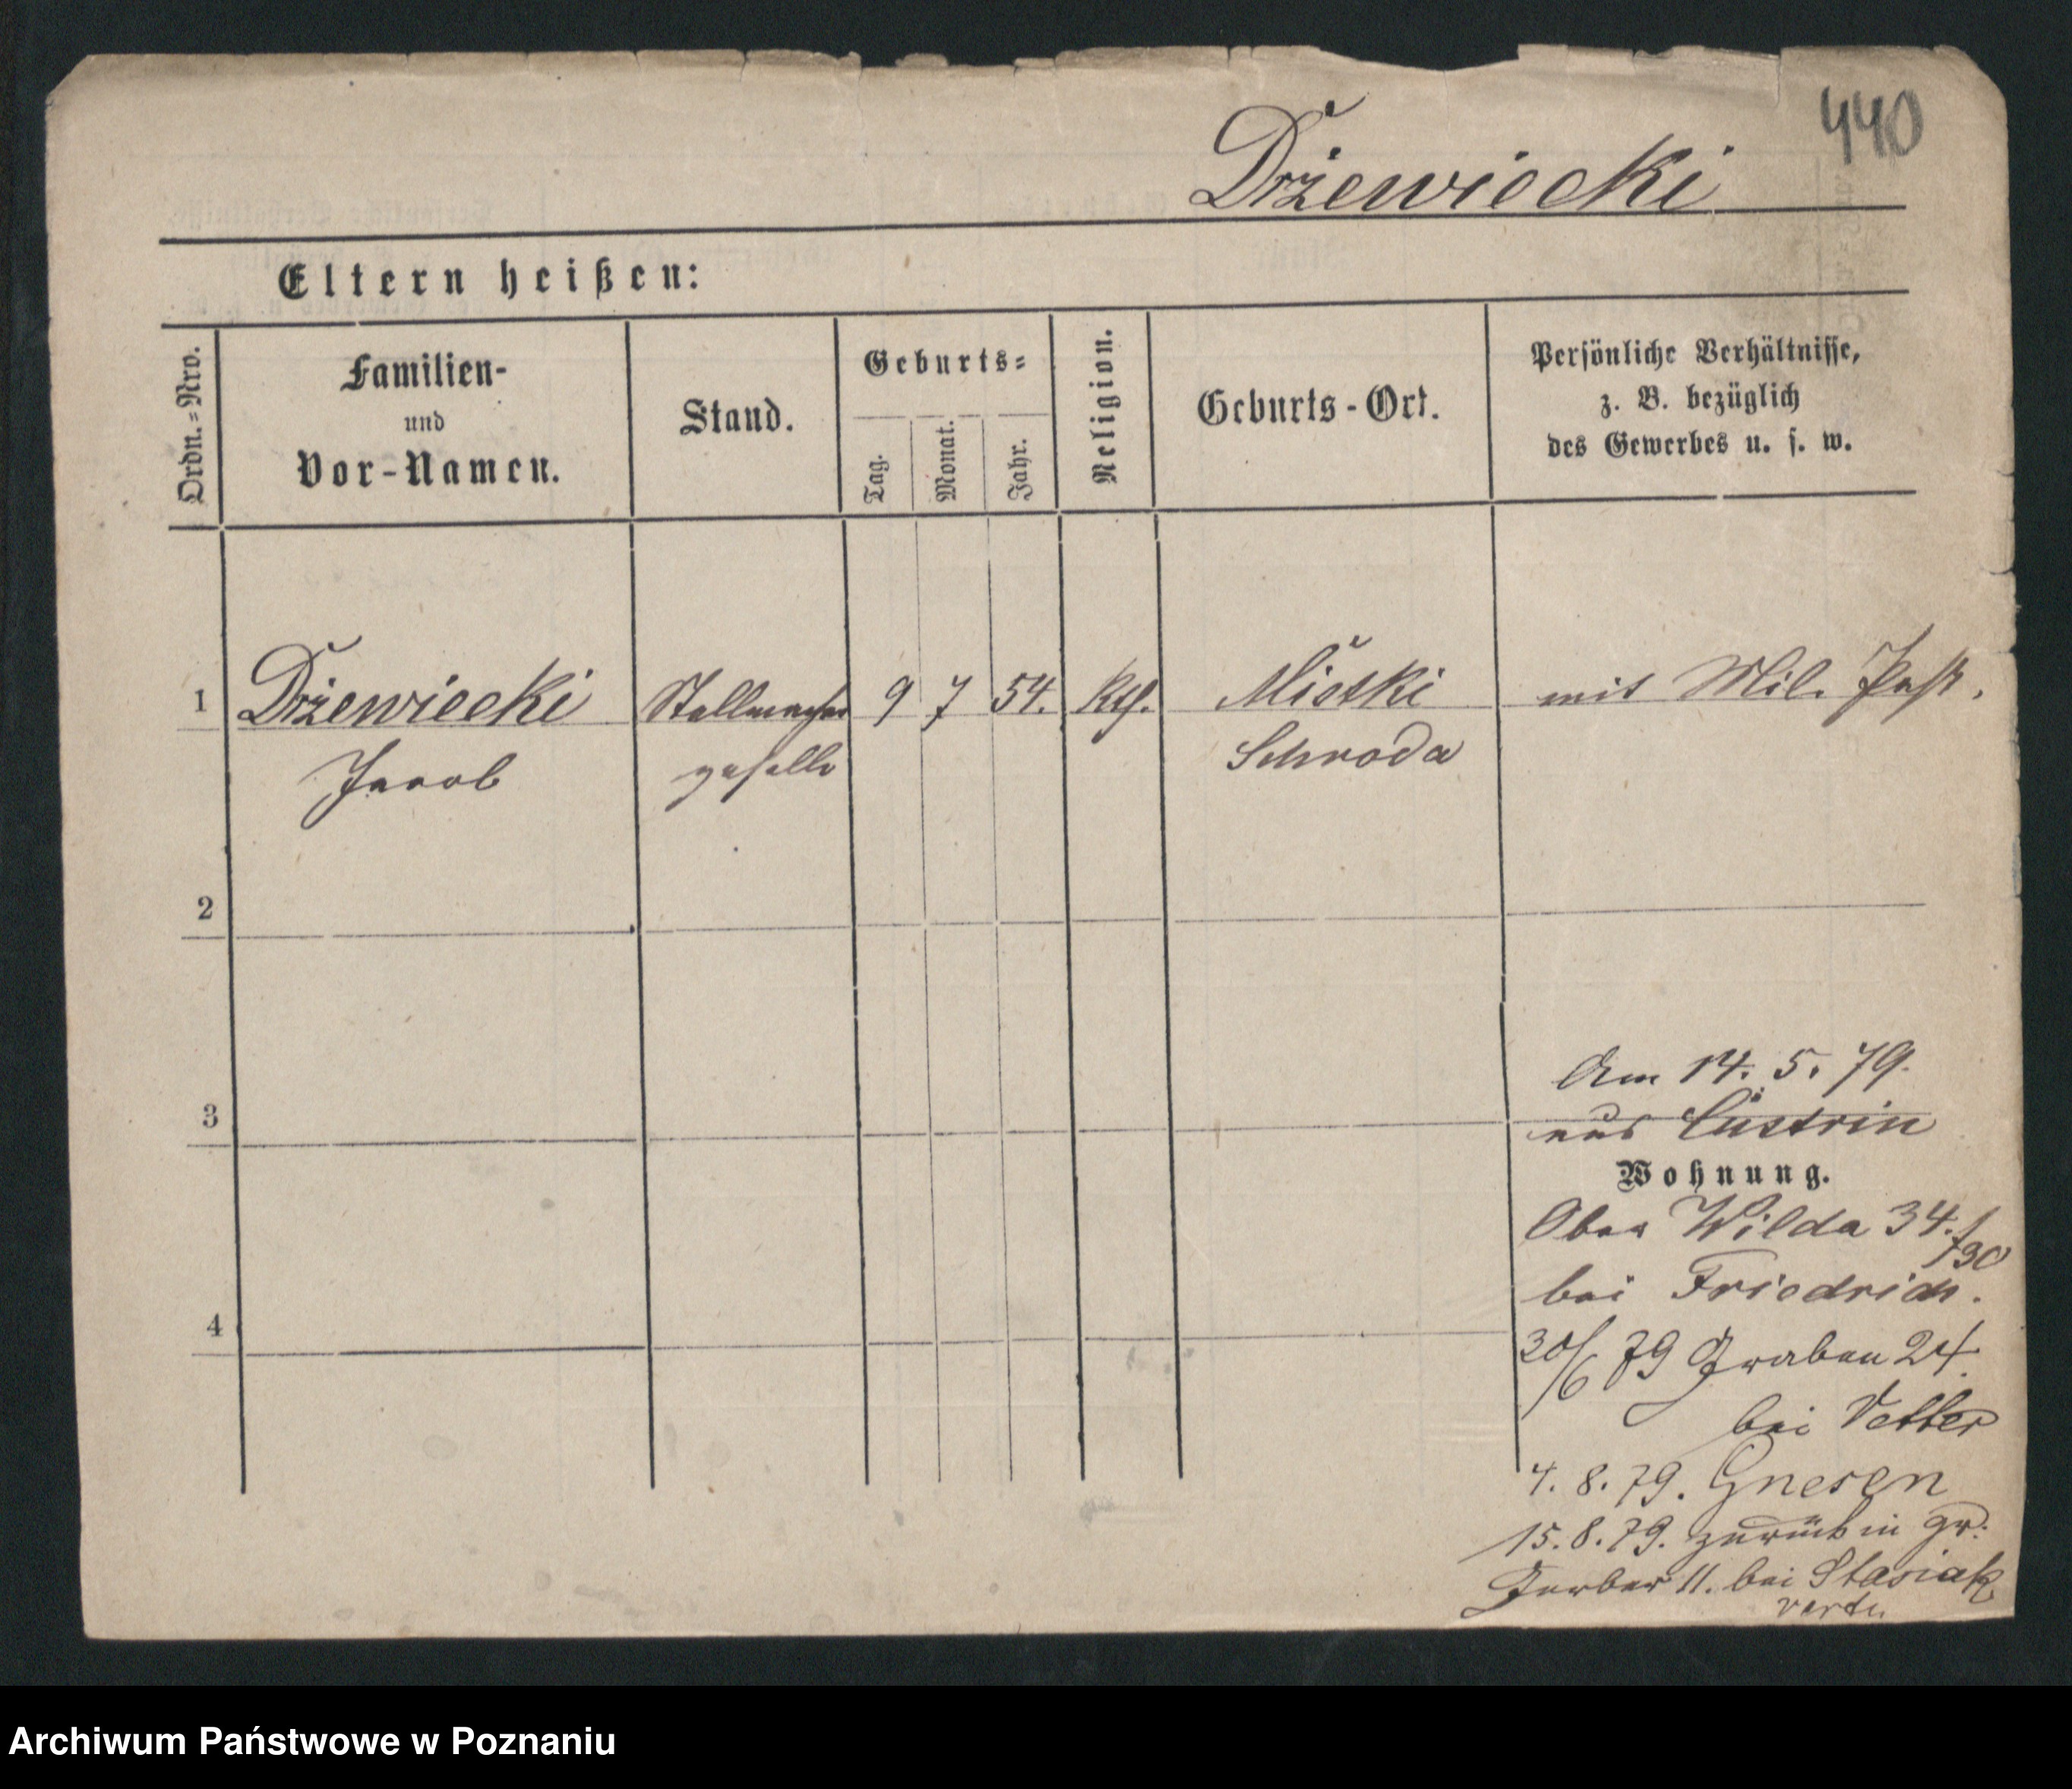 440
Drżewiecki
Eltern heißen:
Ordn.=Nro.
Familien-
und
Vor-Namen.
Stand.
Geburts=
Tag.
Monat.
Jahr.
Religion.
Geburts-Ort.
Persönliche Verhältnisse,
z. B. bezüglich
des Gewerbes u. s. w.
1 Drżewiecki Stellmacher 9 7 54. Kth. mit Mil. Paß.
Jacob geselle Schroda
2
3
4
Am 14. 5. 79.
aus Cüstrin
Wohnung.
Ober Wilda 34./30
bei Friedrich.
30/6 79 Graben 24.
bei Vetter
4. 8. 79. Gnesen
15. 8. 79. zurück in gr.
Gerber 11. bei Stasiak
verte
Archiwum Państwowe w Poznaniu